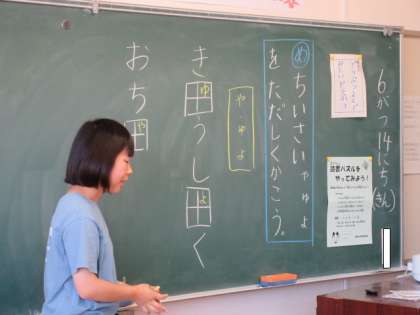 6がつ14にち(きん)
読書パズルを
やってみよう!
め ちいさいやゅよ
をただしくかこう。
や・ゆ・よ
きゅうしょく
おちゃ